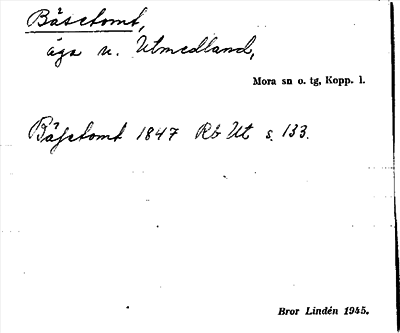 Bäsetomt,
äga n. Utmedland,
Mora sn o. tg, Kopp. l.
Bäsetomt 1847 Rb Ut s. 133.
Bror Lindén 1945.